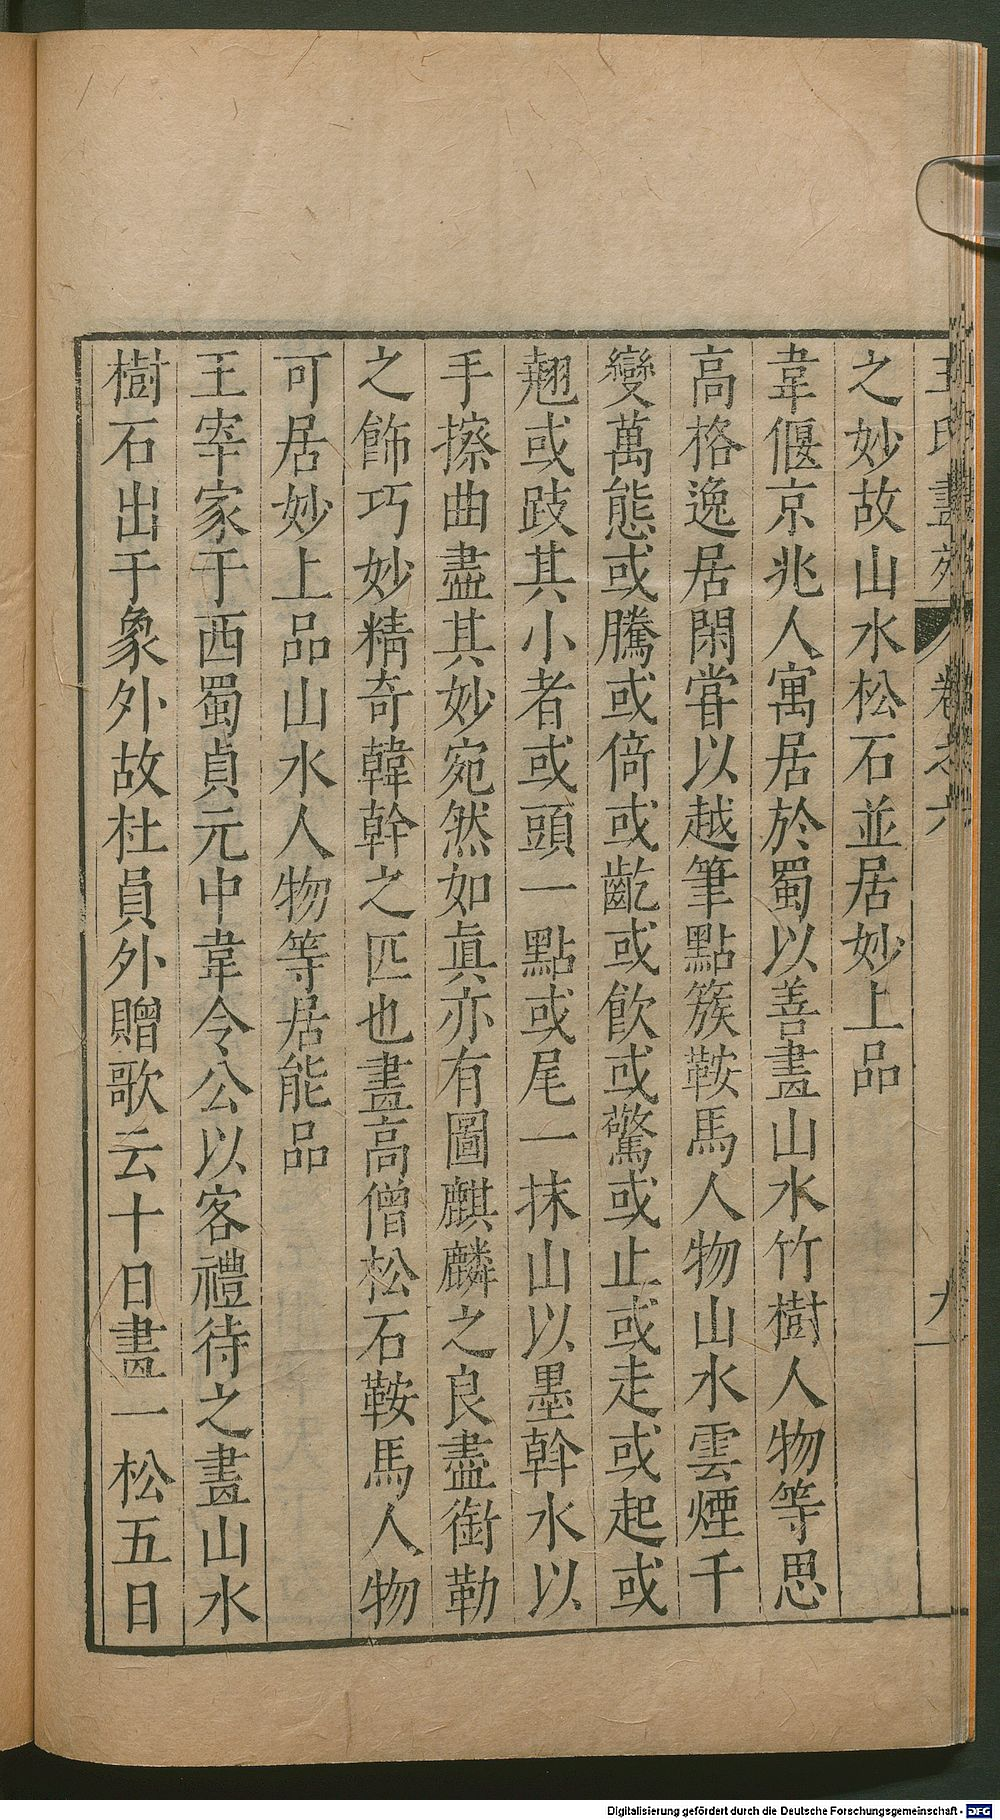 王氏畫苑 卷之六 九
之妙故山水松石並居妙上品
韋偃京兆人寓居於蜀以善畫山水竹樹人物等思
高格逸居閑甞以越筆點簇鞍馬人物山水雲煙千
變萬態或騰或倚或齕或飲或驚或止或走或起或
翹或跂其小者或頭一點或尾一抹山以墨斡水以
手擦曲盡其妙宛然如眞亦有圖麒麟之良盡銜勒
之飾巧妙精奇韓幹之匹也畫高僧松石鞍馬人物
可居妙上品山水人物等居能品
王宰家于西蜀貞元中韋令公以客禮待之畫山水
樹石出于象外故杜員外贈歌云十日畫一松五日
Digitalisierung gefördert durch die Deutsche Forschungsgemeinschaft - DFG